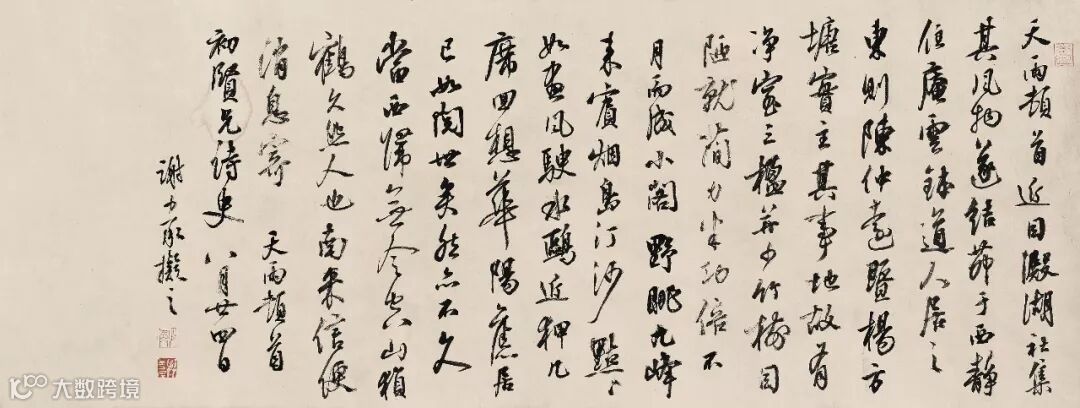 天雨頓首近因澱湖社集
其風物遂結茆于西静
住庵雲鉢道人居之
東則陳仲
塘實主其事地故有
净室三楹並少竹樹因
陋就簡力半功倍不
月而成小閣野眺九峰
来賓烟島汀沙點〻
如画風駛水鷗近狎几
席回想華陽舊居
已如隔世矣然亦不久
當西歸無令空山猿
鶴久怨人也南来信便
消息寄 天雨頓首
初賢兄詩史 八月廿四日
謝擬之
大数跨境